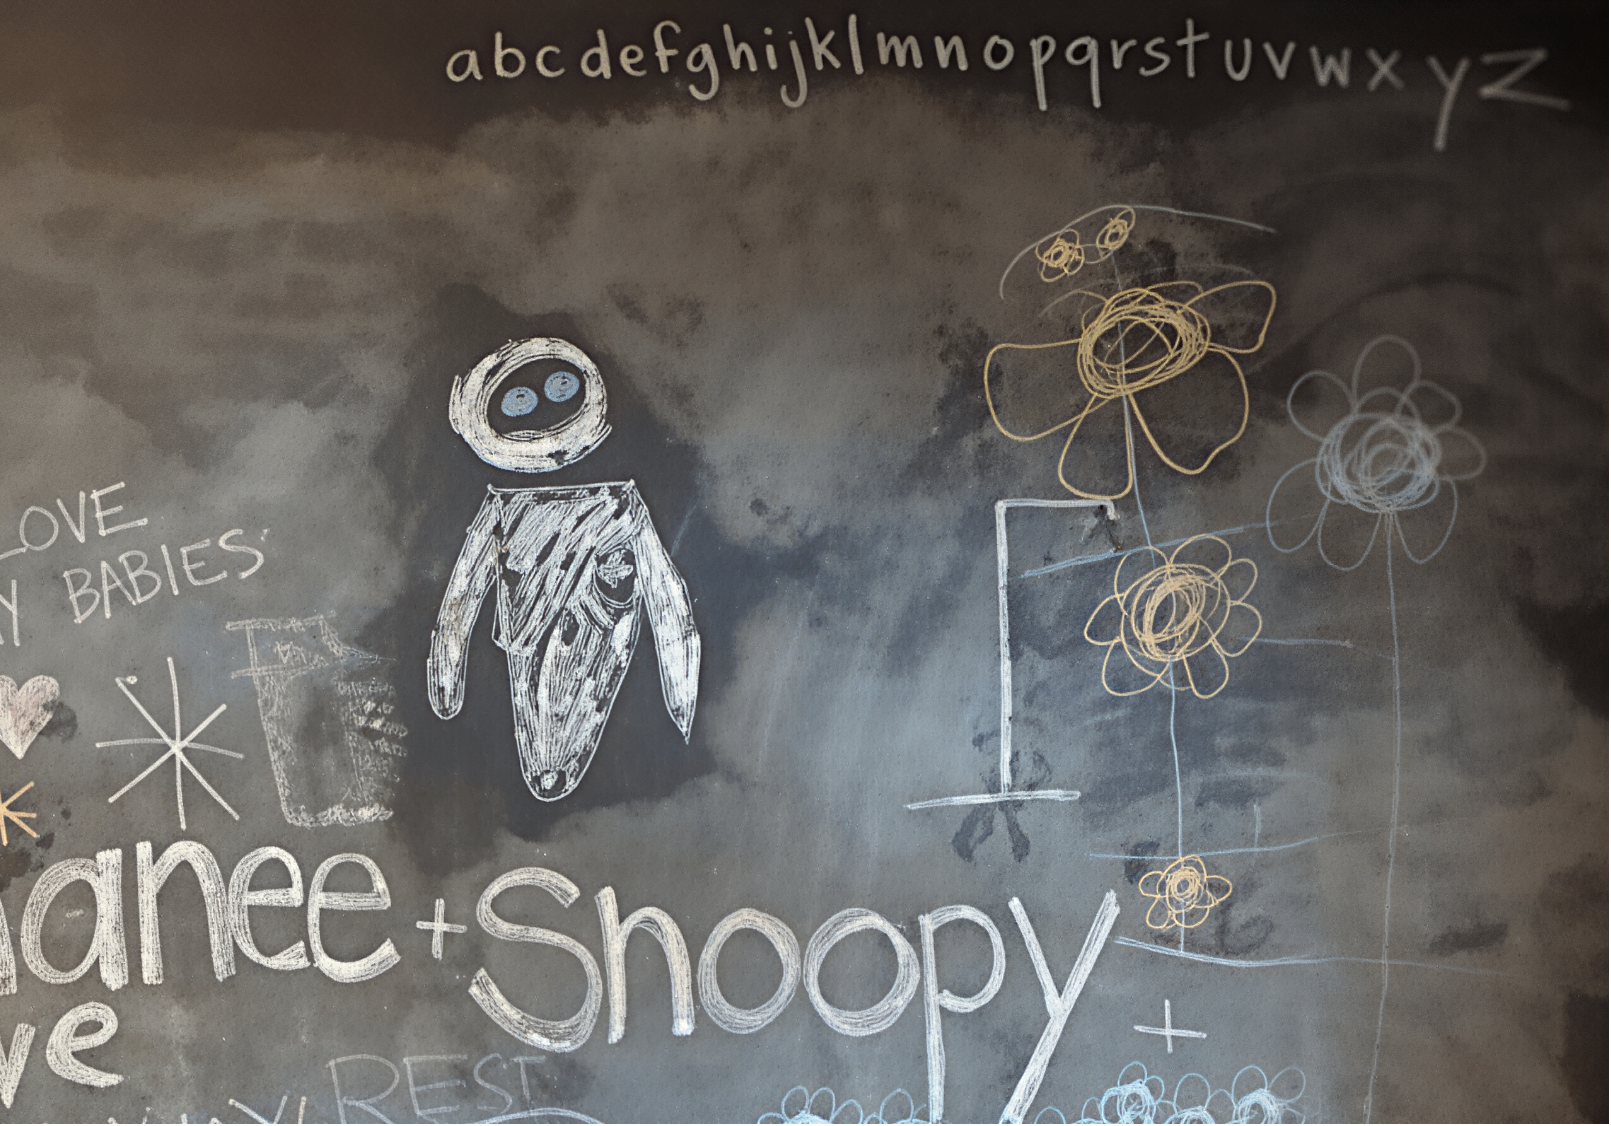 abcdefghijklmnopqrstuvwxyz
LOVE
BABIES
anee + Snoopy
ve +
REST